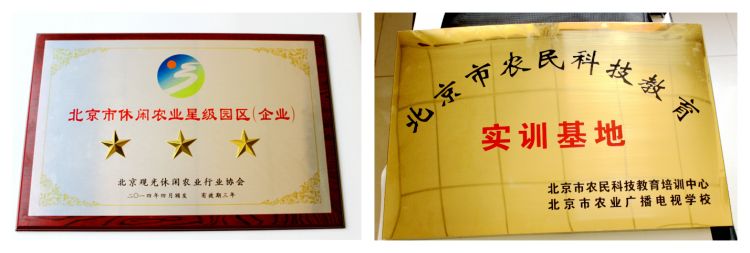 北京市休闲农业星级园区(企业)
北京观光休闲农业行业协会
二〇一四年四月颁发 有效期三年
北京市农民科技教育
实训基地
北京市农民科技教育培训中心
北京市农业广播电视学校